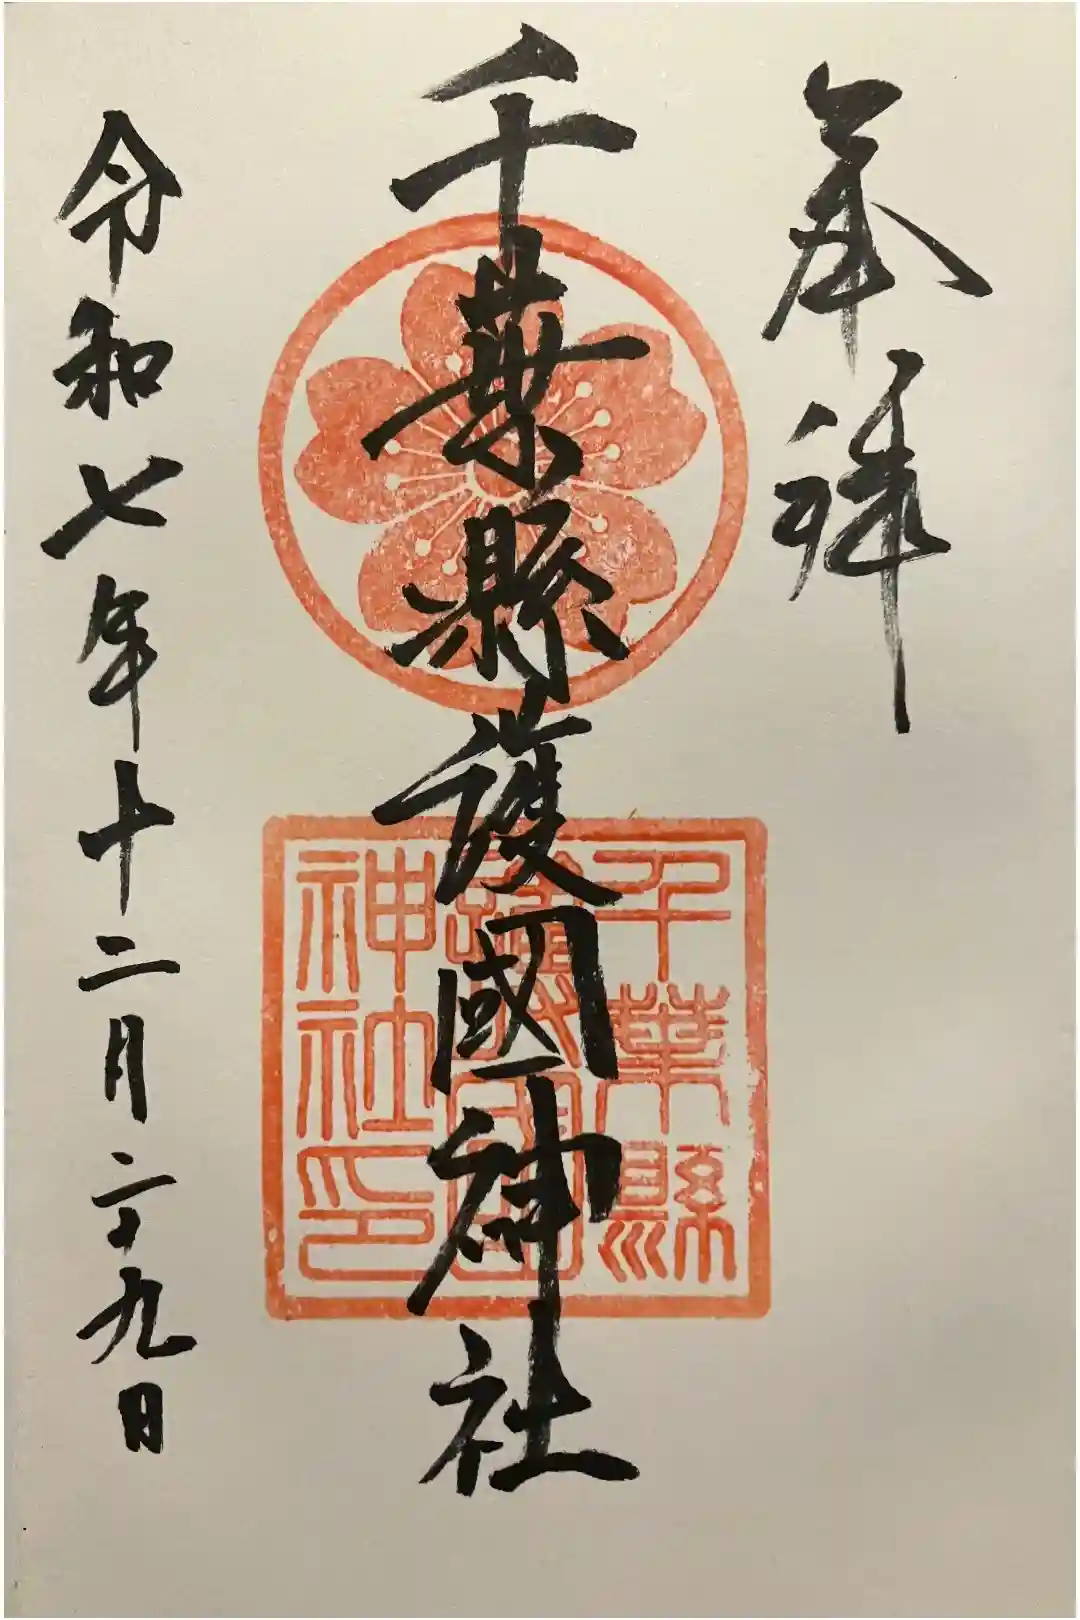 奉拝
千葉縣護國神社
千葉縣
護國
神社印
令和七年十二月二十九日